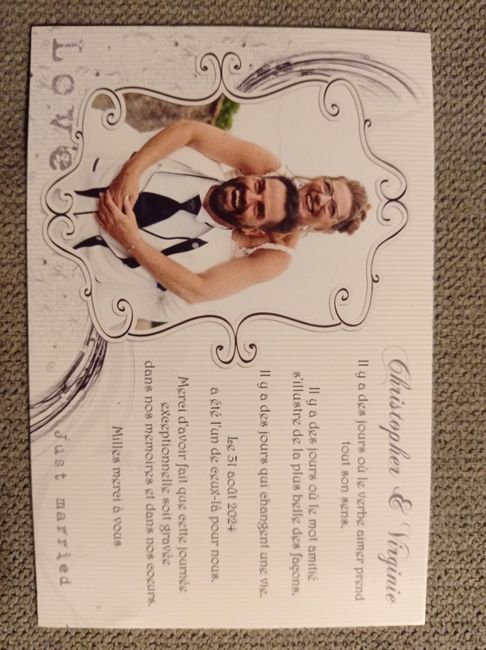 Love
Christopher & Virginie
Il y a des jours où le verbe aimer prend
tout son sens.
Il y a des jours où le mot amitié
s'illustre de la plus belle des façons.
Il y a des jours qui changent une vie.
Le 31 août 2024
a été l'un de ceux-là pour nous.
Merci d'avoir fait que cette journée
exceptionnelle soit gravée
dans nos memoires et dans nos coeurs.
Milles merci à vous
just married